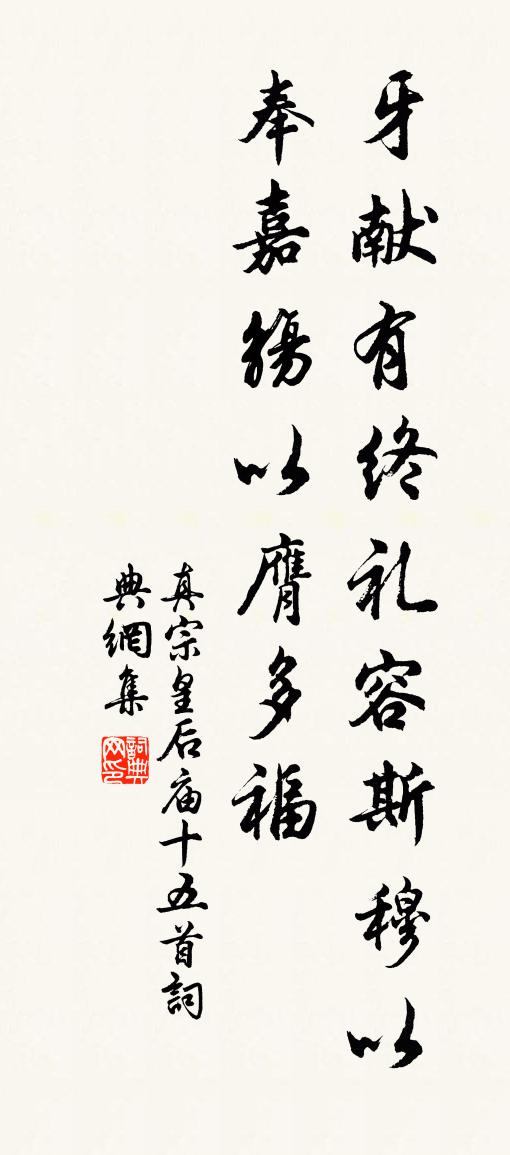 牙献有终礼容斯穆以
奉嘉觞以膺多福
真宗皇后庙十五首詞
典網集
詞典网印